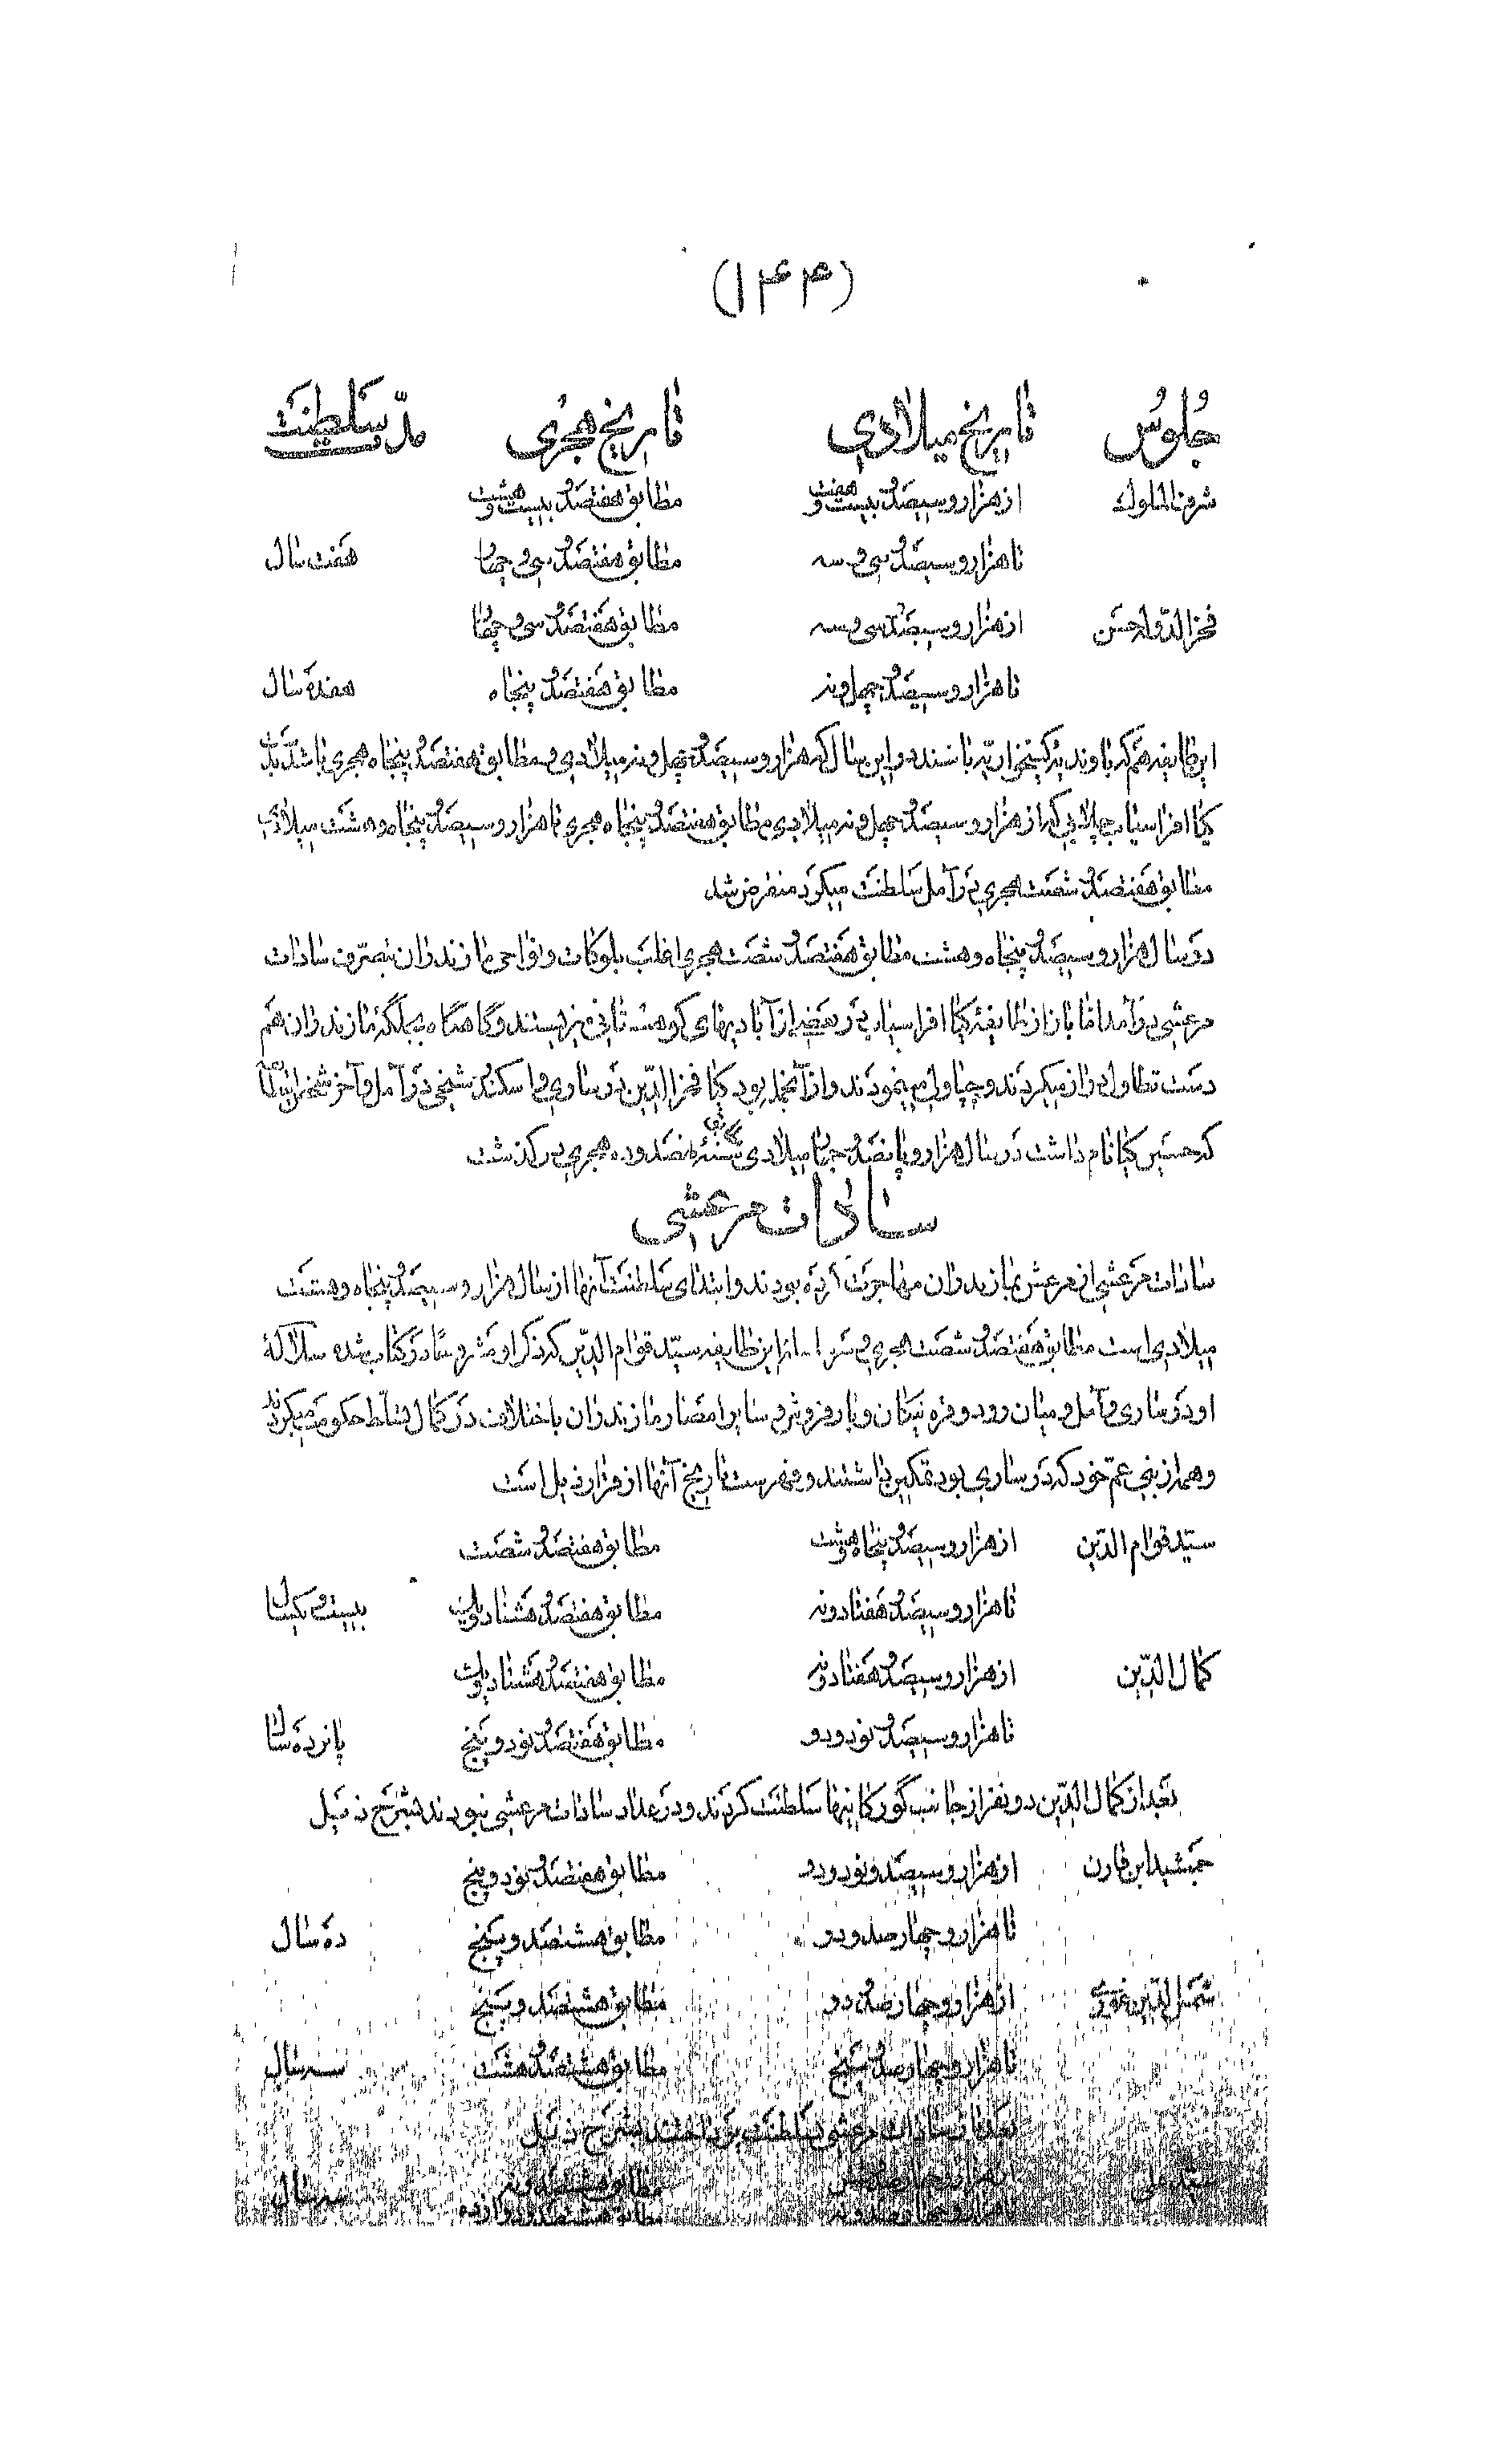 (۱۴۴)
جُلُوسُ تاریخ میلادی تاریخ هجری مدّت سلطنت
شرف‌الملوک از هزار و سیصد و بیست و هفت مطابق هفتصد و بیست و هشت
تا هزار و سیصد و سی و سه مطابق هفتصد و سی و چهار هفت سال
فخرالدوله حسن از هزار و سیصد و سی و سه مطابق هفتصد و سی و چهار
تا هزار و سیصد و چهل و نه مطابق هفتصد و پنجاه هفده سال
این طایفه هم که باوندیه کینخواریه باشند در این سال که هزار و سیصد و چهل و نه میلادی و مطابق هفتصد و پنجاه هجری باشد بدست
کیا افراسیاب چلابی که از هزار و سیصد و چهل و نه میلادی مطابق هفتصد و پنجاه هجری تا هزار و سیصد و پنجاه و هشت میلادی
مطابق هفتصد و شصت هجری در آمل سلطنت میکرد منقرض شد
در سال هزار و سیصد و پنجاه و هشت مطابق هفتصد و شصت هجری اغلب بلوکات و نواحی مازندران بتصرف سادات
مرعشی درآمد اما باز از طایفهٔ کیا افراسیاب در بعضی از آبادیهای کوهستانی میزیستند و گاه گاه بجلگهٔ مازندران هم
دست تطاول دراز میکردند و چپاولی مینمودند و از آنجمله بود کیا فخرالدین در ساری و اسکندر شیخی در آمل و آخر شخص این طایفه
که حسین کیا نام داشت در سال هزار و پانصد و چهار میلادی مطابق سنهٔ نهصد و ده هجری درگذشت
سادات مرعشی
سادات مرعشی از مرعش بمازندران مهاجرت کرده بودند و ابتدای سلطنت آنها از سال هزار و سیصد و پنجاه و هشت
میلادی است مطابق هفتصد و شصت هجری و سر این طایفه سید قوام‌الدین که ذکر او مشروحاً در کتاب شده سلالهٔ
او در ساری و آمل و میان رود و فره تیکان و بارفروش و سایر امصار مازندران باختلاف در کمال تسلط حکومت میکردند
و همه از بنی عمّ خود که در ساری بود تمکین داشتند و فهرست تاریخ آنها از قرار ذیل است
سید قوام‌الدین از هزار و سیصد و پنجاه و هشت مطابق هفتصد و شصت
تا هزار و سیصد و هفتاد و نه مطابق هفتصد و هشتاد و یک بیست و یکسال
کمال‌الدین از هزار و سیصد و هفتاد و نه مطابق هفتصد و هشتاد و یک
تا هزار و سیصد و نود و دو مطابق هفتصد و نود و پنج پانزده سال
بعد از کمال‌الدین دو نفر از جانب گورکانیها سلطنت کردند و در عداد سادات مرعشی نبودند بشرح ذیل
جمشید ابن قارن از هزار و سیصد و نود و دو مطابق هفتصد و نود و پنج
تا هزار و چهارصد و دو مطابق هشتصد و پنج ده سال
شمس‌الدین غوری از هزار و چهارصد و دو مطابق هشتصد و پنج
تا هزار و چهارصد و پنج مطابق هشتصد و هشت سه سال
بعد از سادات مرعشی بسلطنت پرداختند بشرح ذیل
سید علی از هزار و چهارصد و شش مطابق هشتصد و نه سه سال
تا هزار و چهارصد و نه مطابق هشتصد و دوازده